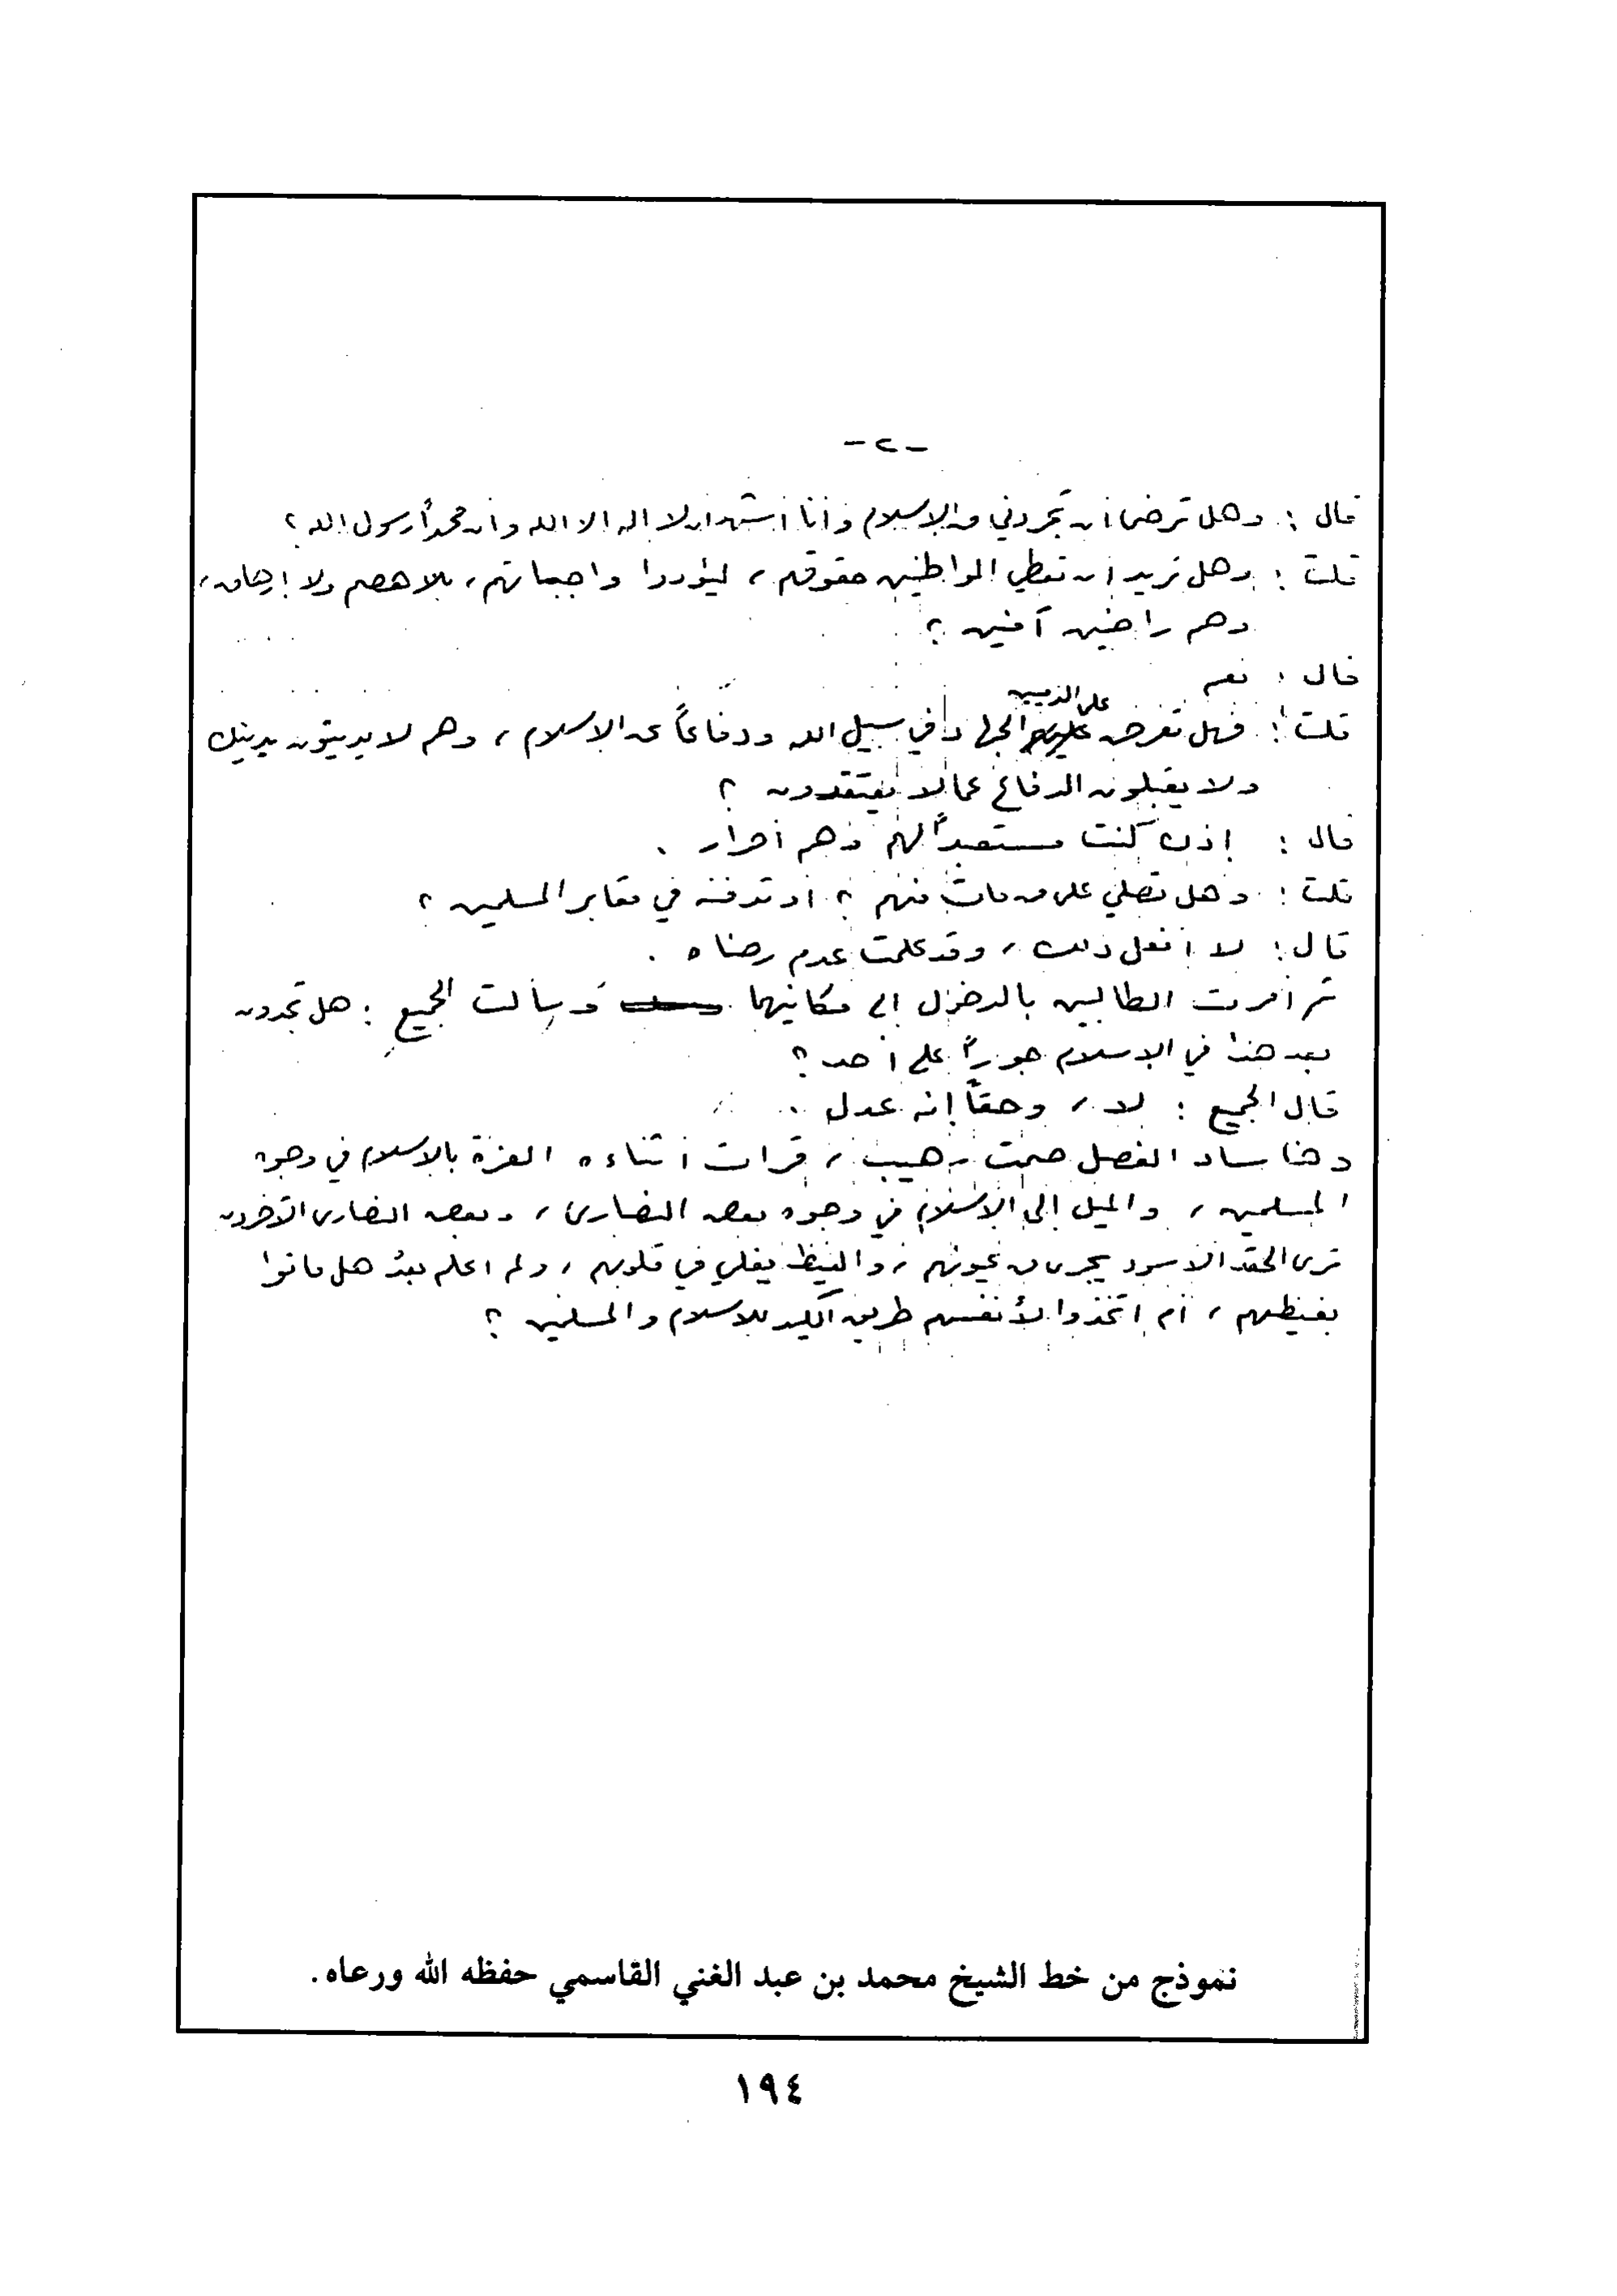 - ٢ -
قال : وهل ترضى أن تجردني من الإسلام وأنا أشهد أن لا اله الا الله وأن محمداً رسول الله ؟
قلت : وهل تريد أن تعطي المواطنين حقوقهم ، ليؤدوا واجباتهم ، بلا هضم ولا إرهاق ،
وهم راضين آمنين ؟
قال : نعم
على الذميين
قلت : فهل تفرض الجهاد في سبيل الله ودفاعاً عن الإسلام ، وهم لا يدينون بدينك
ولا يقبلون الدفاع عما لا يعتقدون ؟
قال : إذن كنت مستعبداً لهم وهم أحرار .
قلت : وهل تصلي على من مات منهم ؟ أو تدفنه في مقابر المسلمين ؟
قال : لا أفعل ذلك ، وقد علمت عدم رضاه .
ثم أمرت الطالبين بالدخول الى مكانيهما وسألت الجميع : هل تجدون
بعد هذا في الاسلام جوراً على أحد ؟
قال الجميع : لا ، وحقاً إنه عدل .
وهنا ساد الفصل صمت رهيب ، قرأت أثناءه العزة بالاسلام في وجوه
المسلمين ، والميل إلى الاسلام في وجوه بعض النصارى ، وبعض النصارى الآخرون
ترى الحقد الأسود يجري من عيونهم ، والغيظ يغلي في قلوبهم ، ولم اعلم بعدُ هل ماتوا
بغيظهم ، أم اتخذوا لأنفسهم طريق الكيد للاسلام والمسلمين ؟
نموذج من خط الشيخ محمد بن عبد الغني القاسمي حفظه الله ورعاه .
١٩٤